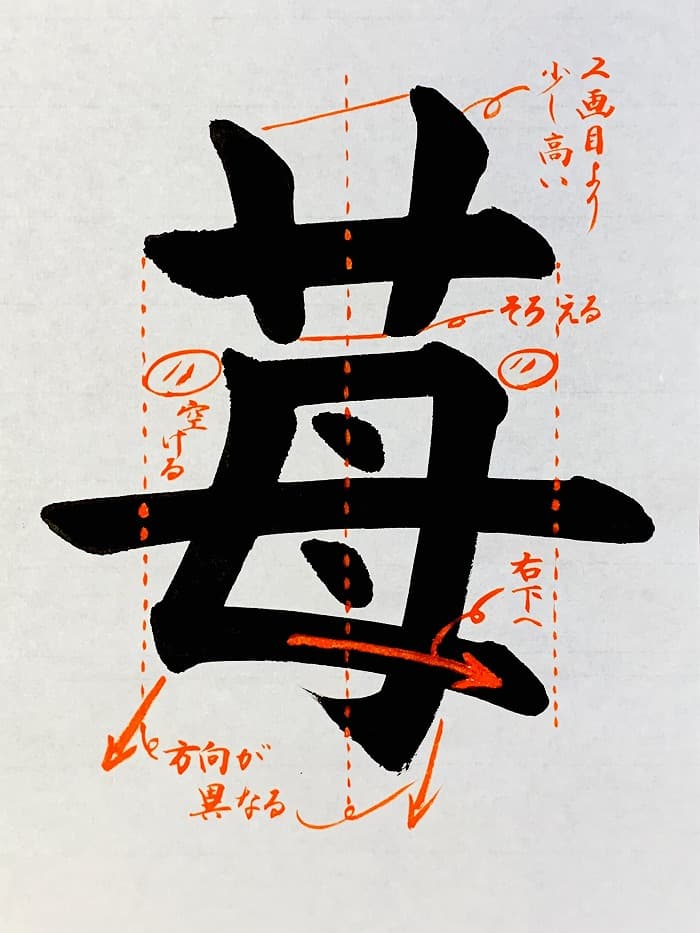 苺
2画目より
少し高い
そろえる
〃
〃
空ける
右下へ
方向が
異なる